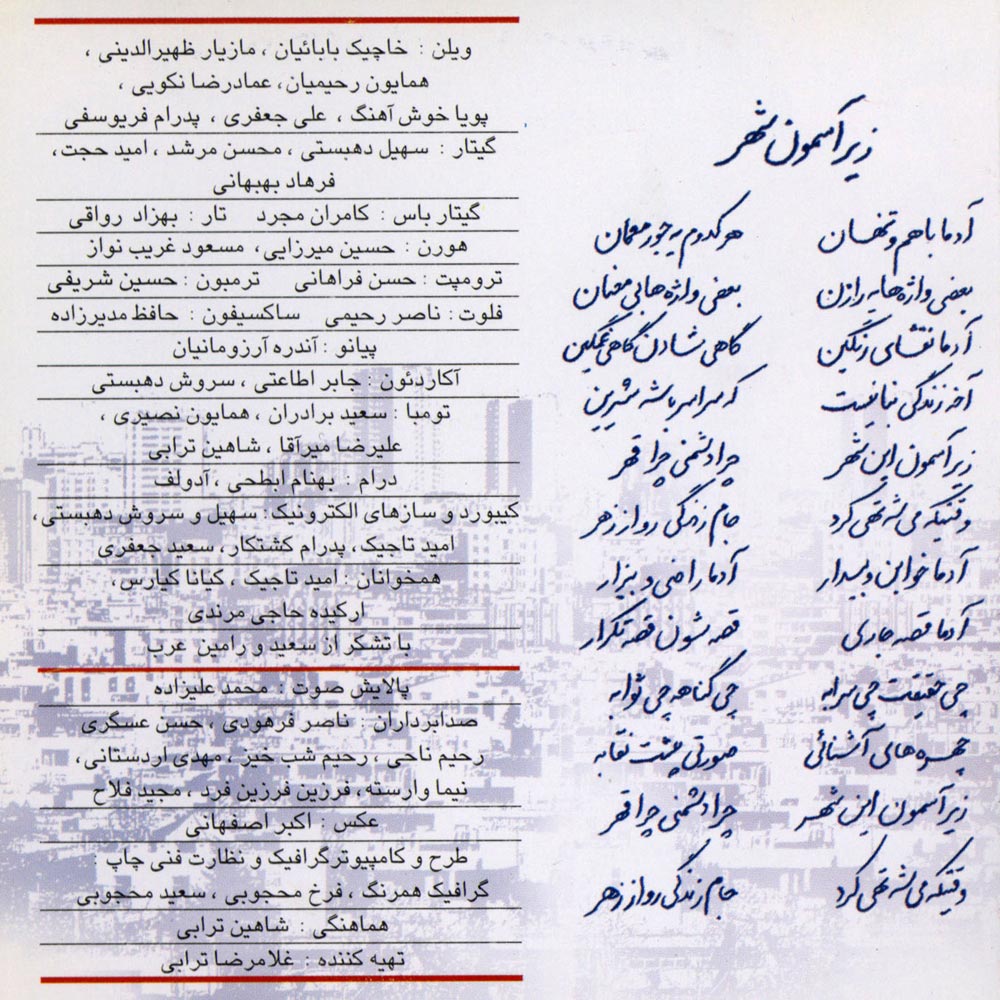 زیر آسمون شهر
آدما با هم و تنهان هر کدوم یه جور معمان
بعضی واژه های رازن بعضی واژه های معنان
آدما نقشای رنگین گاهی شادن گاهی غمگین
آخه زندگی نبا نیست که سراسر باشه شیرین
زیر آسمون این شهر چرا دشمنی چرا قهر
وقتیکه می شه تهی کرد جام زندگی رو از زهر
آدما خوابن و بیدار آدما راضی و بیزار
آدما قصه جاری قصه شون قصه تکرار
چی حقیقت چی سرابه چی گناهه چی ثوابه
چهره های آشنائی صورتی پشت نقابه
زیر آسمون این شهر چرا دشمنی چرا قهر
وقتیکه می شه تهی کرد جام زندگی رو از زهر
ویلن : خاچیک بابائیان ، مازیار ظهیرالدینی ،
همایون رحیمیان، عمادرضا نکویی ،
پویا خوش آهنگ ، علی جعفری ، پدرام فریوسفی
گیتار : سهیل دهبستی ، محسن مرشد ، امید حجت،
فرهاد بهبهانی
گیتار باس : کامران مجرد تار : بهزاد رواقی
هورن : حسین میرزایی، مسعود غریب نواز
ترومپت : حسن فراهانی ترمبون : حسین شریفی
فلوت : ناصر رحیمی ساکسیفون : حافظ مدیرزاده
پیانو : آندره آرزومانیان
آکاردئون : جابر اطاعتی ، سروش دهبستی
تومبا : سعید برادران ، همایون نصیری ،
علیرضا میرآقا ، شاهین ترابی
درام : بهنام ابطحی ، آدولف
کیبورد و سازهای الکترونیک: سهیل و سروش دهبستی،
امید تاجیک، پدرام کشتکار، سعید جعفری
همخوانان : امید تاجیک ، کیانا کیارس،
ارکیده حاجی مرندی
با تشکر از سعید و رامین عرب
پالایش صوت : محمد علیزاده
صدابرداران : ناصر فرهودی ، حسن عسگری
رحیم ناحی ، رحیم شب خیز ، مهدی اردستانی،
نیما وارسته، فرزین فرزین فرد ، مجید فلاح
عکس : اکبر اصفهانی
طرح و کامپیوتر گرافیک و نظارت فنی چاپ :
گرافیک همرنگ ، فرخ محجوبی ، سعید محجوبی
هماهنگی : شاهین ترابی
تهیه کننده : غلامرضا ترابی